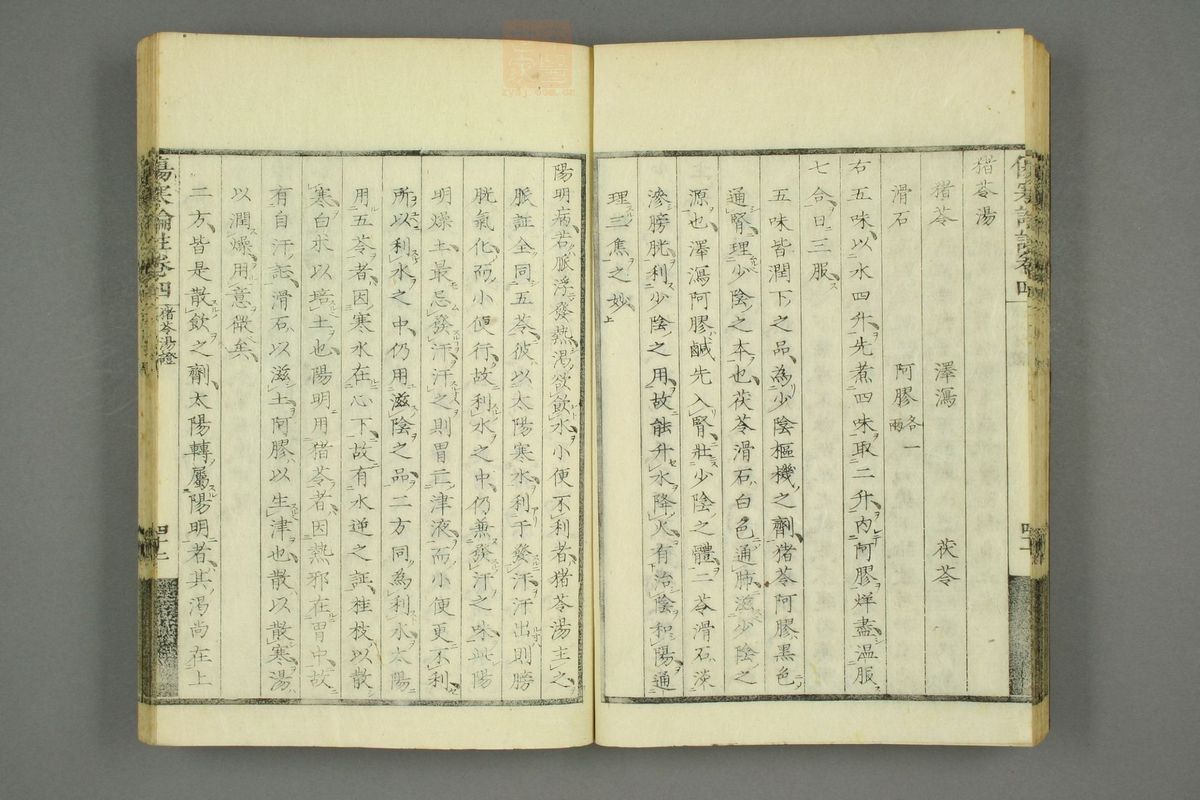 猪苓湯
猪苓　澤瀉　茯苓
滑石　阿膠各一兩
右五味以水四升先煮四味取二升內阿膠烊盡温服
七合日三服
五味皆潤下之品為少陰樞機之劑猪苓阿膠黑色
通腎理少陰之本也茯苓滑石白色通肺滋少陰之
源也澤瀉阿膠鹹先入腎壯少陰之體二苓滑石淡
滲膀胱利少陰之用故能升水降火有治陰和陽通
理三焦之妙
陽明病若脈浮發熱渴欲飲水小便不利者猪苓湯主之
脈証全同五苓彼以太陽寒水利于發汗汗出則膀
胱氣化而小便行故利水之中仍兼發汗之味此陽
明燥土最忌發汗汗之則胃亡津液而小便更不利
所以利水之中仍用滋陰之品二方同為利水太陽
用五苓者因寒水在心下故有水逆之証桂枝以散
寒白朮以培土也陽明用猪苓者因熱邪在胃中故
有自汗証滑石以滋土阿膠以生津也散以散寒湯
以潤燥用意微矣
二方皆是散飲之劑太陽轉屬陽明者其渴尚在上
傷寒論註卷四
猪苓湯證
四十一
zysj.com.cn